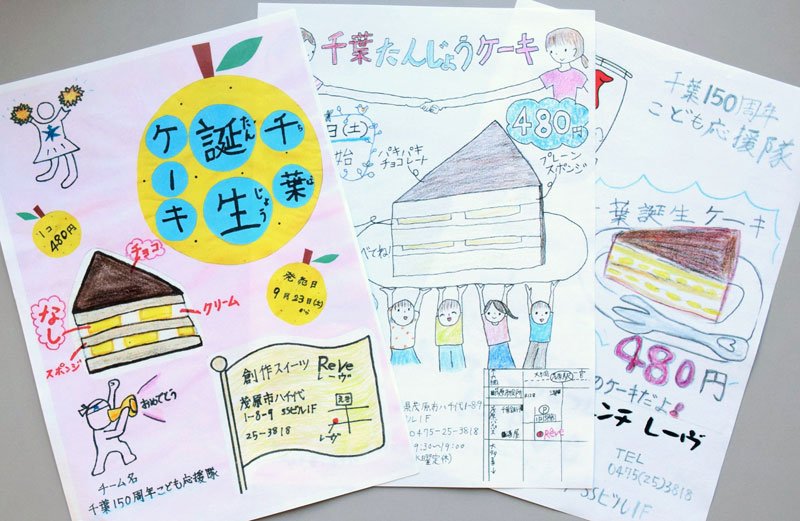 千葉
ち ば
誕生
たん じょう
ケーキ
1コ
480円
発売日
9月23日(土)
から
チョコ
なし
クリーム
スポンジ
おめでとう
創作スイーツ Reve
レーヴ
茂原市八千代
1-8-9 SSビル1F
25-3818
レーヴ
チーム名
千葉150周年こども応援隊
千葉たんじょうケーキ
日(土)
始
パキパキ
チョコレート
480円
プレーン
スポンジ
べてね!
県茂原市八千代1-8-9
ビル1F
0475-25-3818
9:30~19:00
曜定休)
Reve
千葉150周年
こども応援隊
葉誕生ケーキ
480円
のケーキだよ!
ンチ レーヴ
TEL
0475(25)3818
SSビル1F